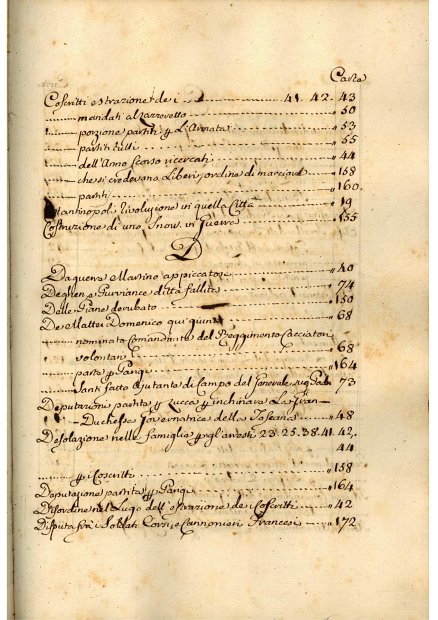 Carte
Coscritti estrazione de i 41. 42. 43
mandati al Lazzeretto 50
porzione partiti p L'Armata 53
partiti tutti 55
dell'Anno scorso ricercati 44
che si credevano Liberi, ordine di marciare 158
partiti 160
Costantinopoli Rivoluzione in quella Città 19
Costruzione di uno in Guerra 135
D
Daguerra Martino appiccator 40
e Purviance ditta fallita 74
Delle Piane derubato 150
De Mattej Domenico qui giunto 68
nominato Comandante del Reggimento Cacciatori
volontarj 68
parte p Parigi 164
Santi fatto Ajutante di Campo del Generale suo Padre 73
Deputazione partita p Lucca p inchinare La Gran
Duchessa Governatrice della Toscana 48
Desolazione nelle famiglie p gl'arresti 23. 25. 38. 41. 42.
44
p i Coscritti 158
Deputazione partita p Parigi 164
Disordine nel Luogo dell'estrazione de i Coscritti 42
Disputa frà i Soldati Corsi e Cannonieri Francesi 172